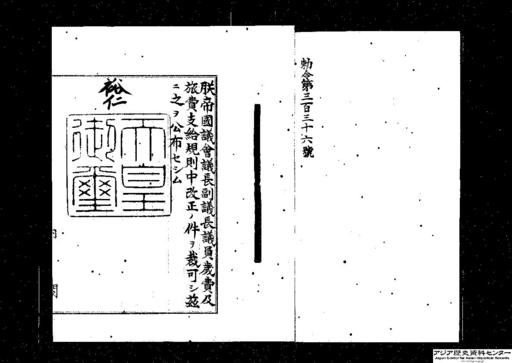 勅令第三百三十六號
朕帝國議會議長副議長議員歲費及
旅費支給規則中改正ノ件ヲ裁可シ茲
ニ之ヲ公布セシム
裕仁
天皇
御璽
アジア歴史資料センター
Japan Center for Asian Historical Records